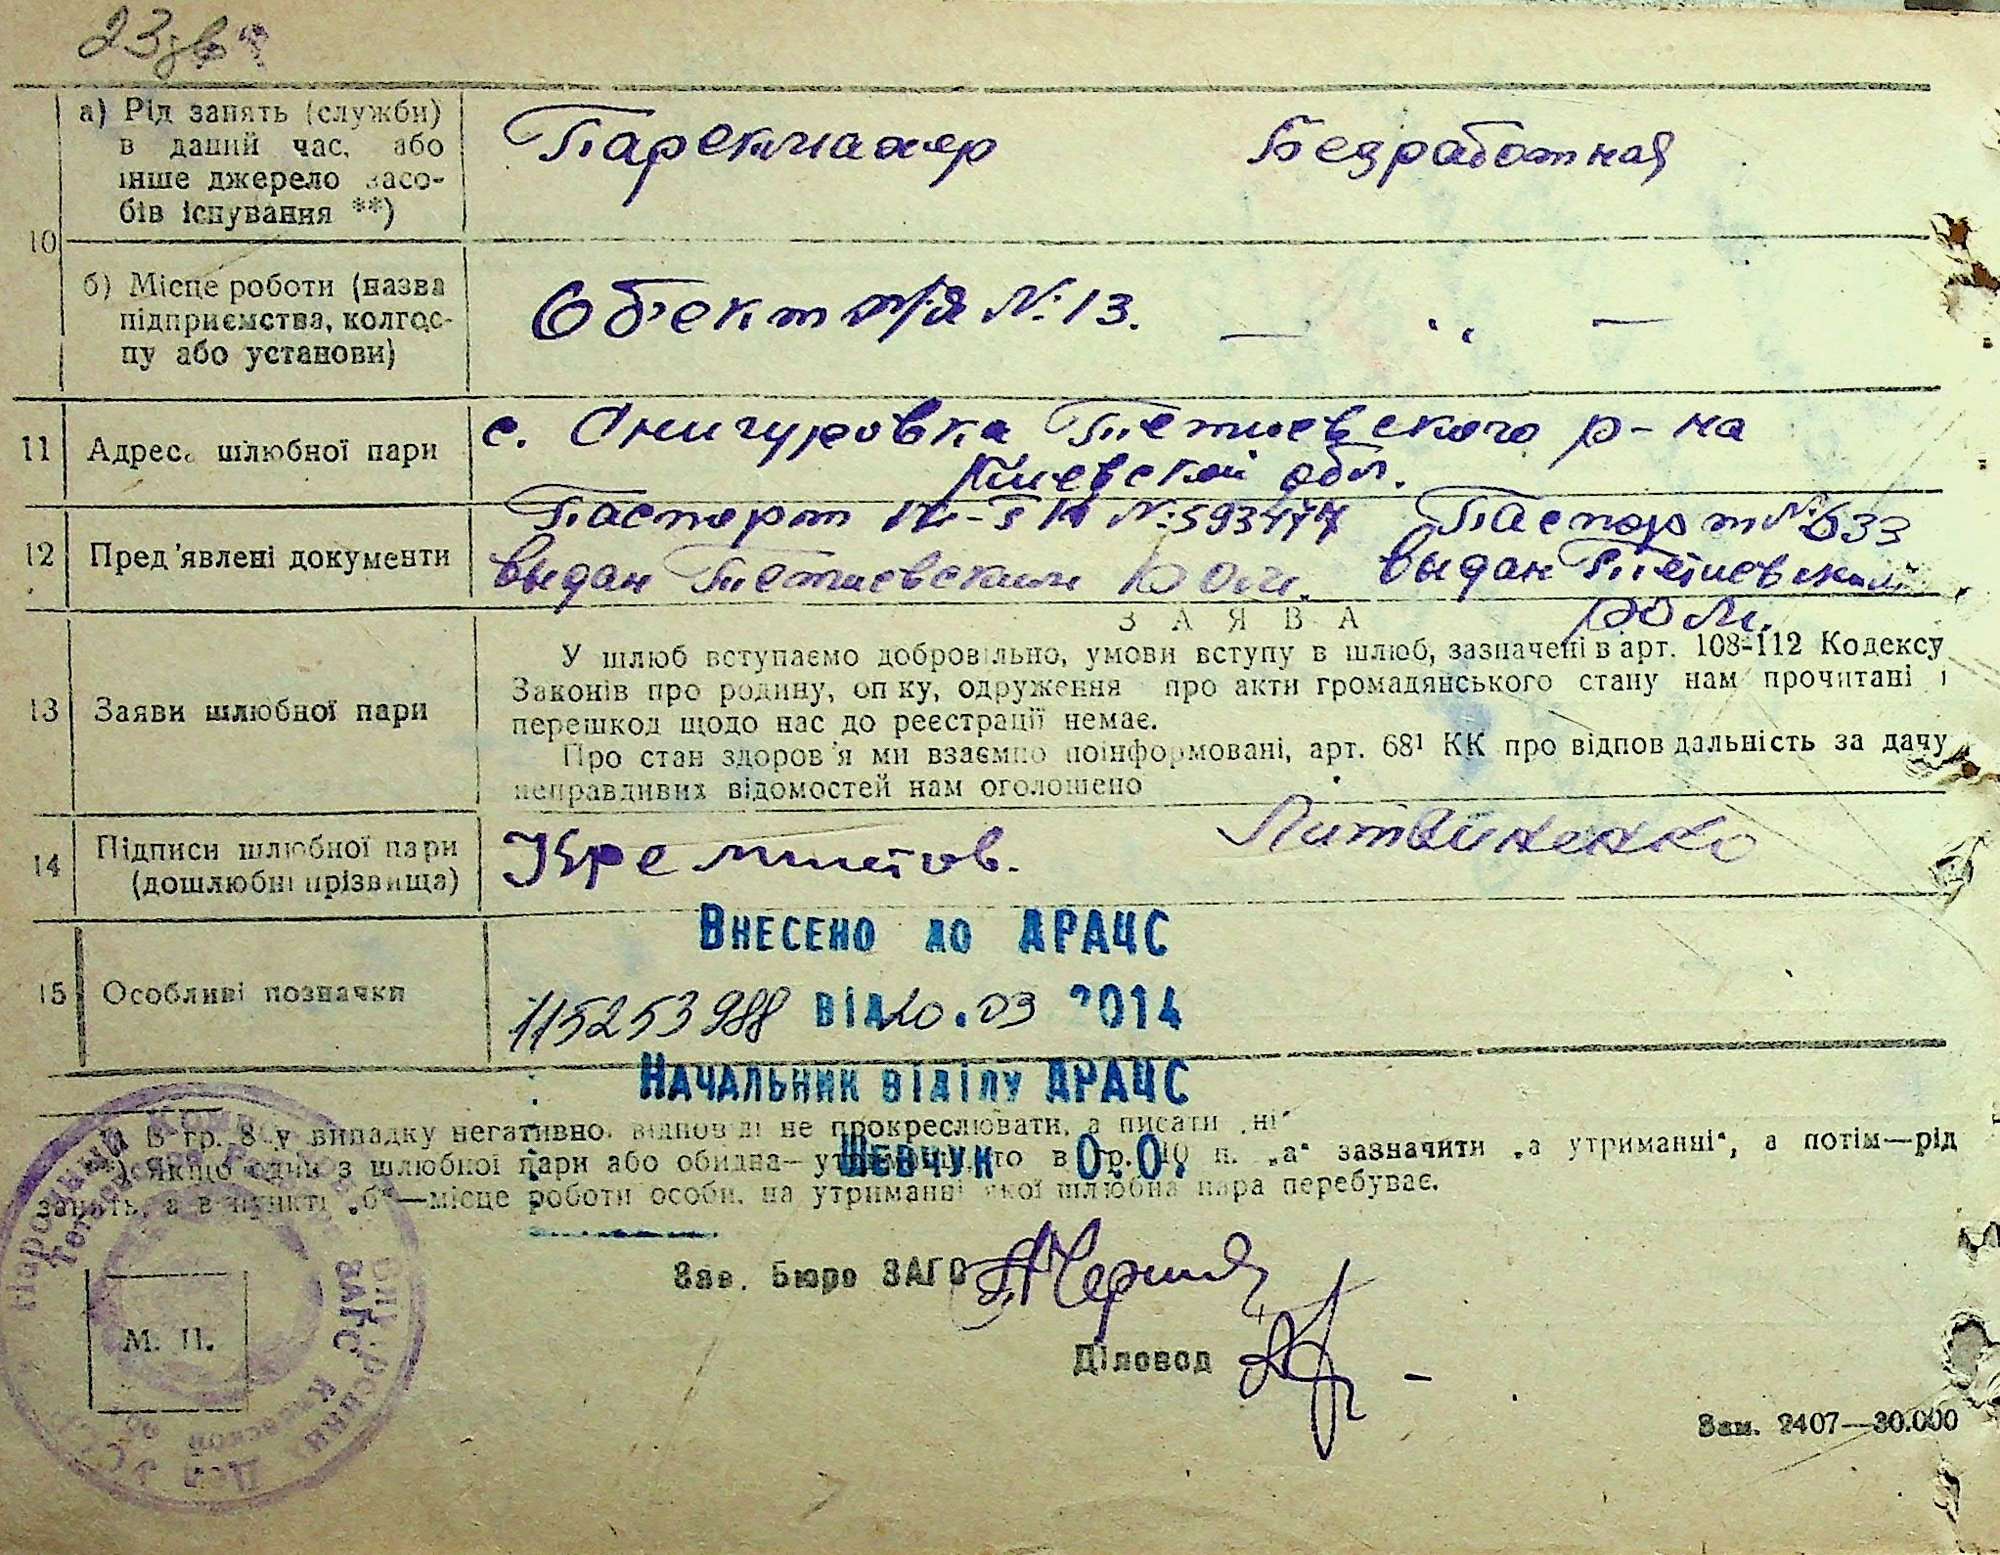 23
10
а) Рід занять (служби)
в даний час, або
інше джерело засо-
бів існування **)
Парекмахер Безработная
б) Місце роботи (назва
підприємства, колгос-
пу або установи)
Обʼект п/я №13. — „ —
11 Адреса шлюбної пари
с. Снигуровка Тетиевского р-на
Киевской обл.
12 Пред'явлені документи
Паспорт № 593477 Паспорт № 633
выдан Тетиевским РОМ. выдан Тетиевским
РОМ.
З А Я В А
13 Заяви шлюбної пари
У шлюб вступаємо добровільно, умови вступу в шлюб, зазначені в арт. 108-112 Кодексу
Законів про родину, опіку, одруження про акти громадянського стану нам прочитані і
перешкод щодо нас до реєстрації немає.
Про стан здоров'я ми взаємно поінформовані, арт. 68¹ КК про відповідальність за дачу
неправдивих відомостей нам оголошено
14 Підписи шлюбної пари
(дошлюбні прізвища)
Литвиненко
Внесено до ДРАЦС
15 Особливі позначки
115253988 від 20.03 2014
Начальник відділу ДРАЦС
В гр. 8 у випадку негативно. відповіді не прокреслювати, а писати „ні“
Шевчук О.О.
Якщо один з шлюбної пари або обидва— то в гр. 10 п. „а“ зазначити „а утриманні“, а потім—рід
занять, а в пункті „б“—місце роботи особи, на утриманні якої шлюбна пара перебуває.
Зав. Бюро ЗАГС
М. П.
Діловод
ЗАГС
Киевской
Зам. 2407—30.000